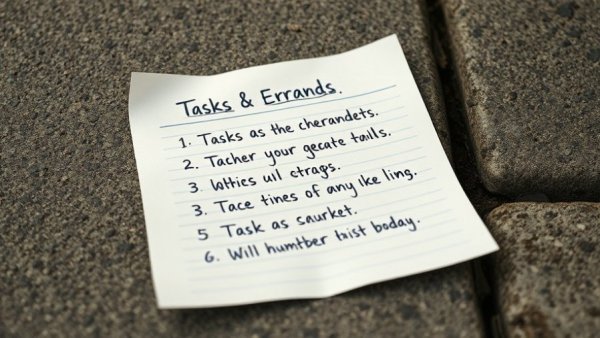 Tasks & Errands.
1. Tasks as the cherandets.
2. Tacher your gecate taills.
3. Wthics uil ctrags.
3. Tace tines of any ike ling.
5 Task as saurket.
6. Will humtber txist boday.